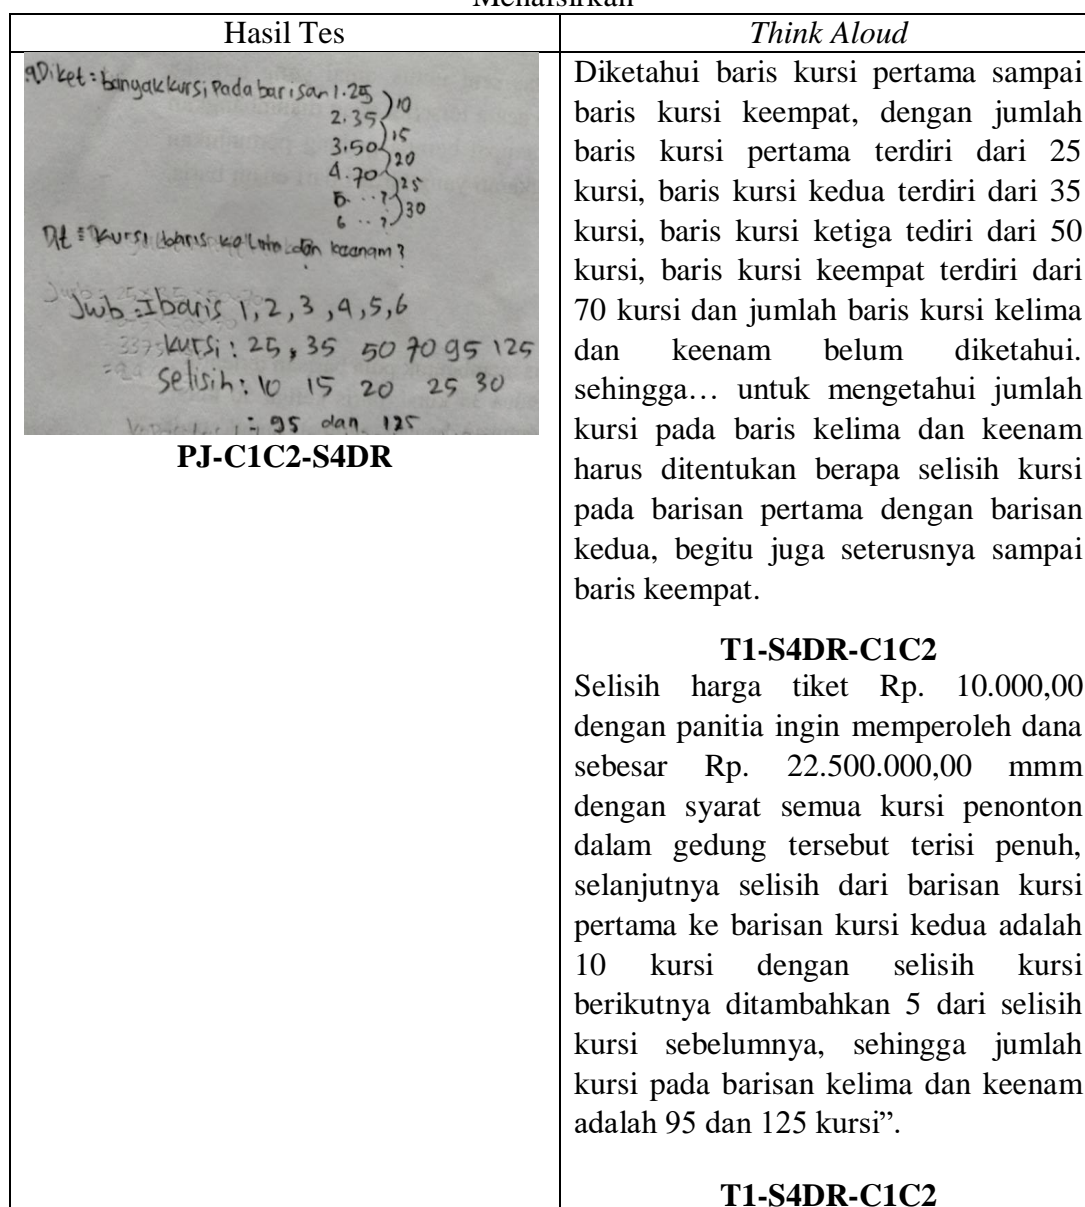 Menafsirkan
Hasil Tes
Think Aloud
Diket : banyak kursi Pada barisan 1. 25
10
2. 35
15
3. 50
20
4. 70
25
5 .. ?
30
6 .. ?
Dt : Kursi baris kelima dan keenam ?
Jwb : baris 1, 2, 3, 4, 5, 6
kursi : 25, 35 50 70 95 125
Selisih : 10 15 20 25 30
: 95 dan 125
PJ-C1C2-S4DR
Diketahui baris kursi pertama sampai
baris kursi keempat, dengan jumlah
baris kursi pertama terdiri dari 25
kursi, baris kursi kedua terdiri dari 35
kursi, baris kursi ketiga tediri dari 50
kursi, baris kursi keempat terdiri dari
70 kursi dan jumlah baris kursi kelima
dan keenam belum diketahui.
sehingga… untuk mengetahui jumlah
kursi pada baris kelima dan keenam
harus ditentukan berapa selisih kursi
pada barisan pertama dengan barisan
kedua, begitu juga seterusnya sampai
baris keempat.
T1-S4DR-C1C2
Selisih harga tiket Rp. 10.000,00
dengan panitia ingin memperoleh dana
sebesar Rp. 22.500.000,00 mmm
dengan syarat semua kursi penonton
dalam gedung tersebut terisi penuh,
selanjutnya selisih dari barisan kursi
pertama ke barisan kursi kedua adalah
10 kursi dengan selisih kursi
berikutnya ditambahkan 5 dari selisih
kursi sebelumnya, sehingga jumlah
kursi pada barisan kelima dan keenam
adalah 95 dan 125 kursi”.
T1-S4DR-C1C2